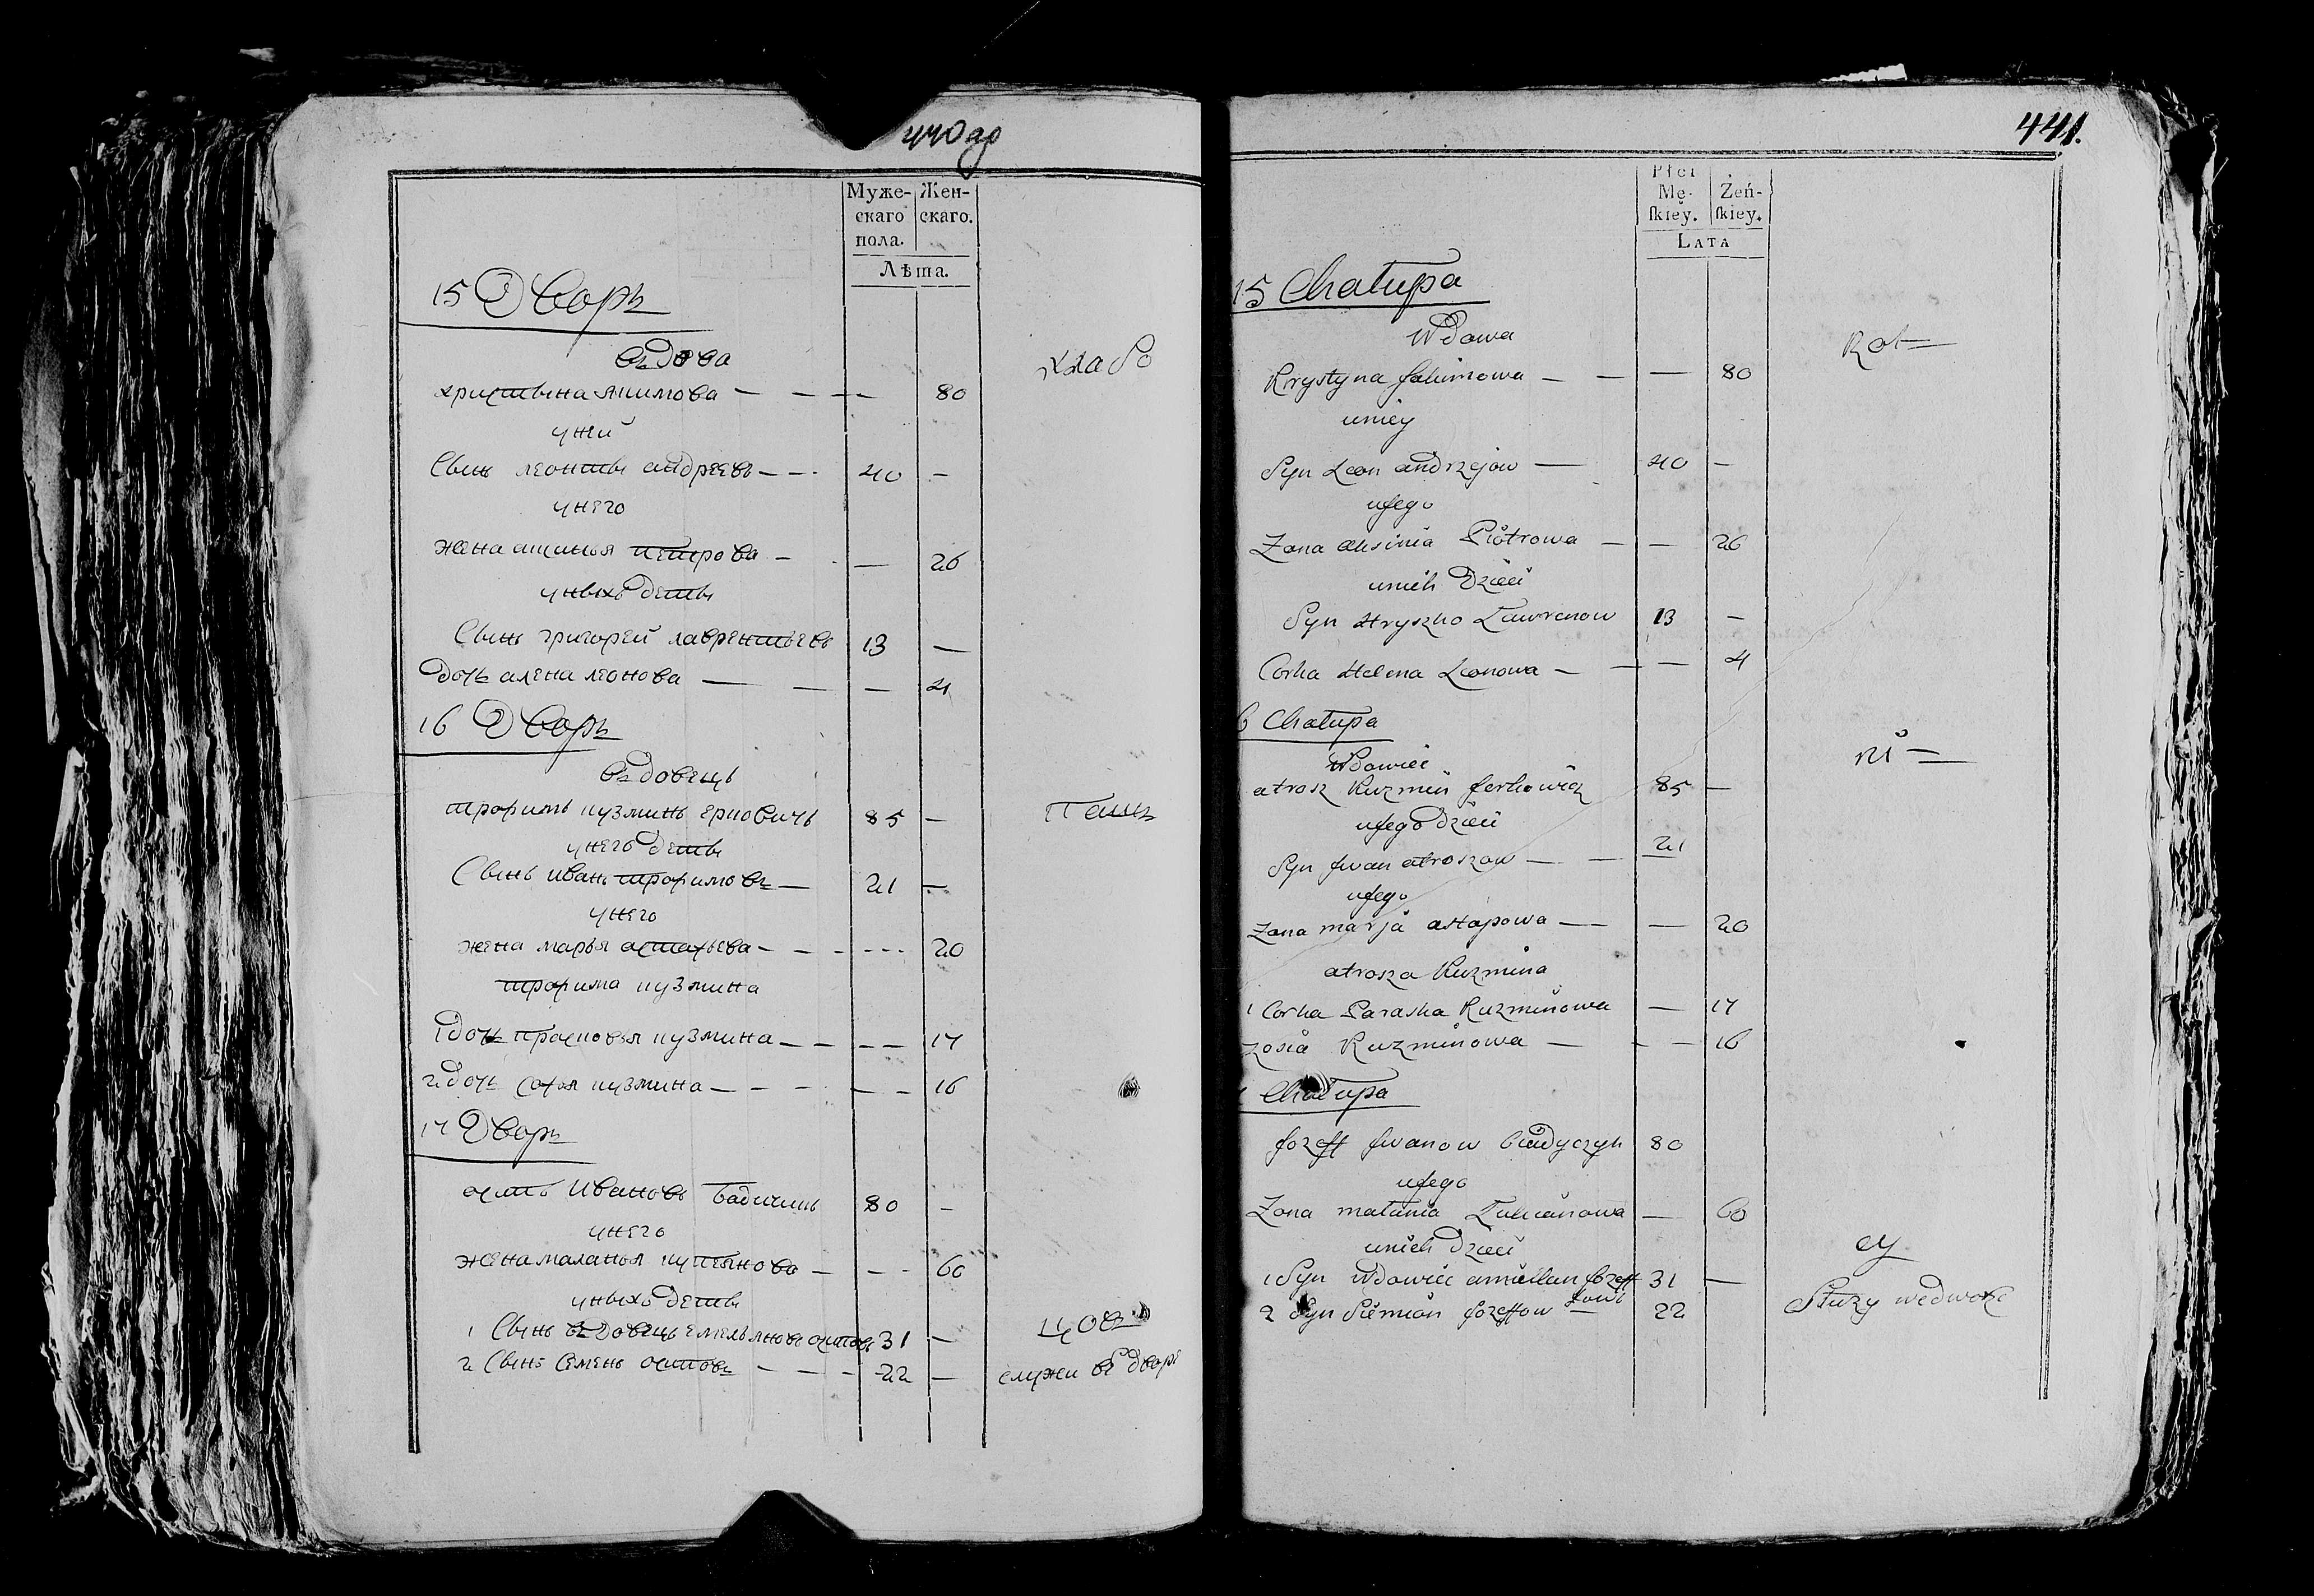 440 об
Муже-скаго пола. Жен-скаго.
Лѣта.
15 Дворъ
вдова
христина якимова — — — — 80 клабо
у ней
Сынъ леонти андреевъ — — 40 —
у него
жена ашинья петрова — — 26
у ныхъ дети
Сынъ григорей лаврентьевъ 13 —
дочь алена леонова — — — 4
16 Дворъ
вдовецъ
трофимъ кузминъ ерковичъ 85 — паши
у него дети
Сынъ иванъ трофимовъ — 21 —
у него
жена марья астахьева — — — 20
трофима кузмина
1 дочь прасковья кузмина — — — 17
2 дочь софья кузмина — — — 16
17 Дворъ
осипъ Ивановъ 80 —
у него
жена маланья — — 60
у ныхъ дети
1 Сынъ вдовецъ емельянъ осиповъ 31 —
2 Сынъ Семенъ осиповъ — — — 22 — служи в дворе
441.
Płci
Mę-ſkiey. Żeń-ſkiey.
Lata
15 Chałupa
Wdowa
Krystyna Jakimowa — — — 80
u niey
Syn Leon andrzejow — 40 —
u jego
Zona aksinia Piotrowa — — 26
u nich Dzieci
Syn Hryszko Lawrenow 13 —
Corka Helena Leonowa — — — 4
6 Chałupa
Wdowiec
atrosz Kuzmin Jerkowicz 85 —
u jego dzieci
Syn Jwan atroszow — — 21
u jego
Zona marja astapowa — — 20
atrosza Kuzmina
1 Corka Paraska Kuzminowa — 17
zosia Kuzminowa — — — 16
Chałupa
Jozeff Jwanow 80
u jego
Zona malania — 60
u nich Dzieci
1 Syn Wdowiec Jozeff 31 —
2 Syn Siemion Jozeffow 22 Służy wedworze